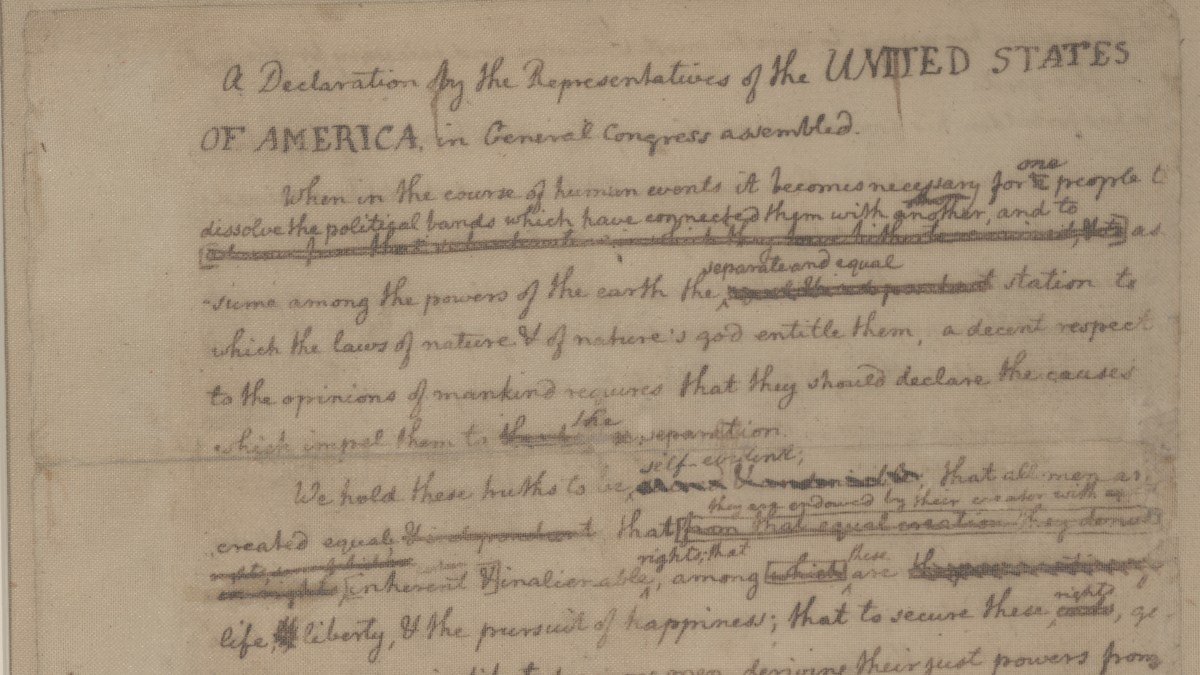 A Declaration by the Representatives of the UNITED STATES
OF AMERICA, in General Congress assembled.
When in the course of human events it becomes necessary for one people to
dissolve the political bands which have connected them with another, and to
as
separate and equal
-sume among the powers of the earth the station to
which the laws of nature & of nature's god entitle them, a decent respect
to the opinions of mankind requires that they should declare the causes
which impel them to the separation.
self-evident;
We hold these truths to be that all men ar
they are endowed by their creator with
created equal & independent that from that equal creation they
rights; that these
inherent & inalienable, among which are
rights
life, liberty, & the pursuit of happiness; that to secure these, go
men, deriving their just powers from